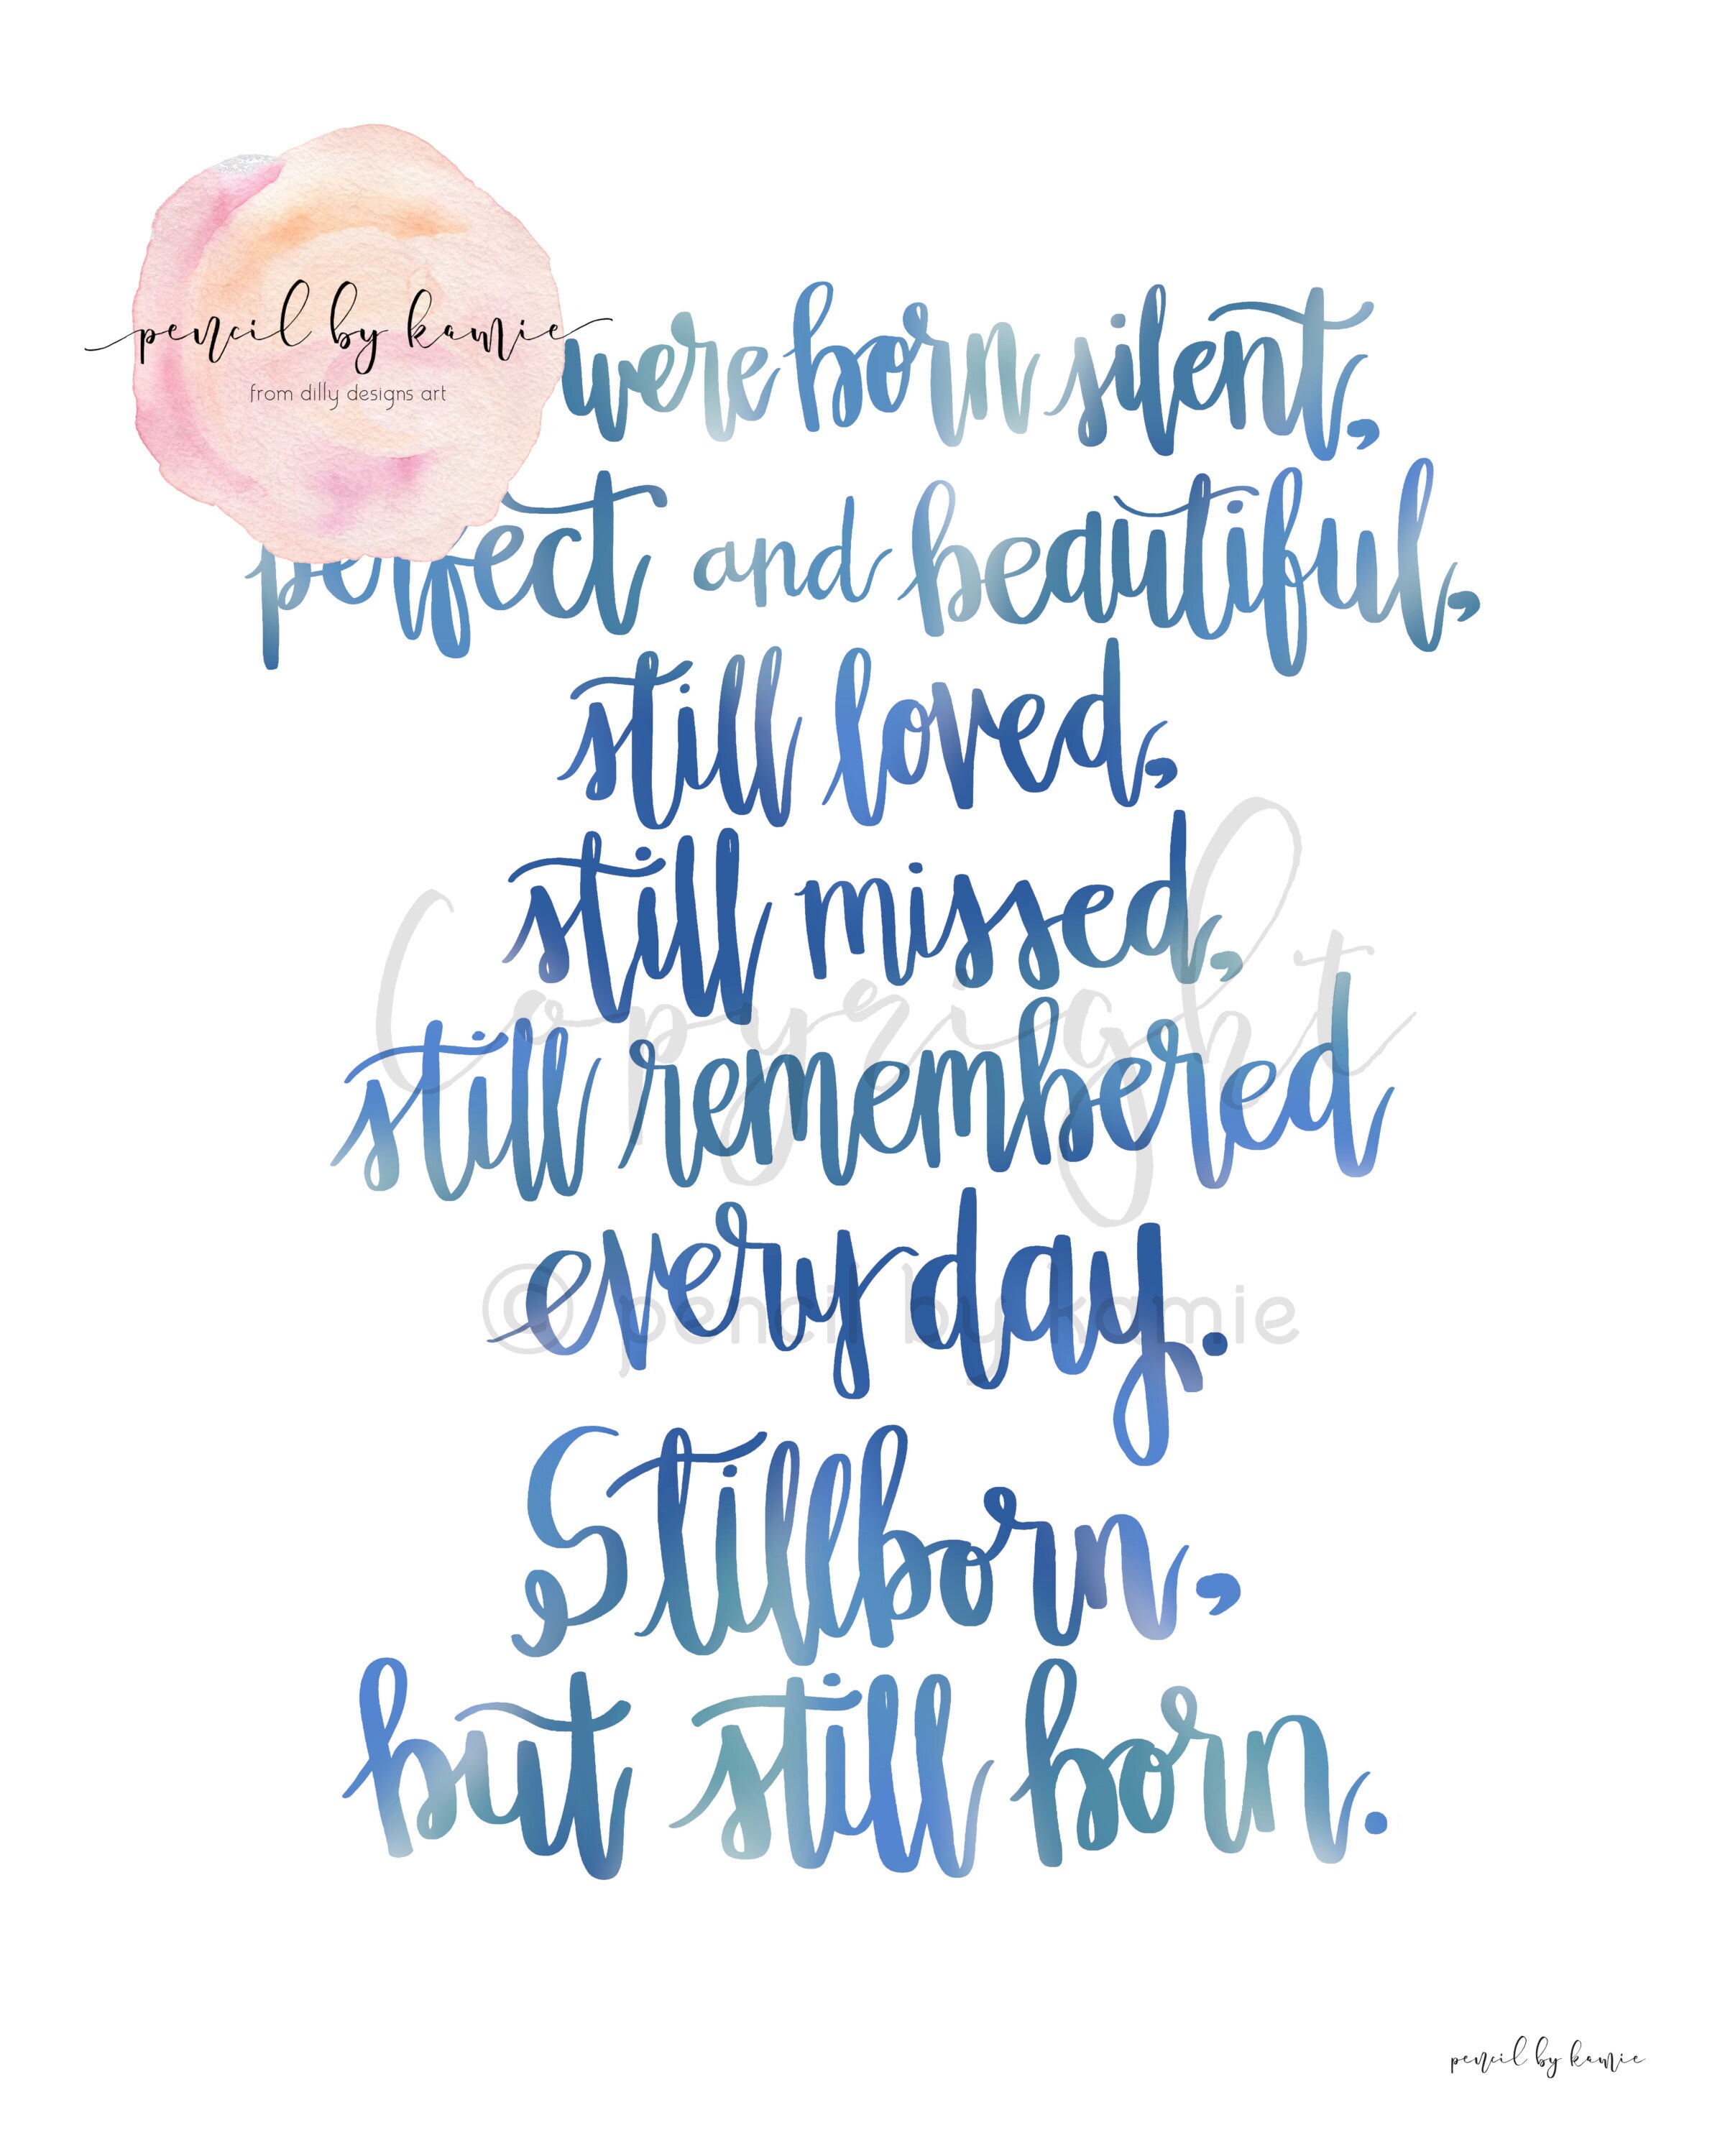 pencil by kamie
from dilly designs art
were born silent,
perfect and beautiful,
still loved,
still missed,
still remembered
everyday.
Stillborn,
but still born.
Copyright
© pencil by kamie
pencil by kamie